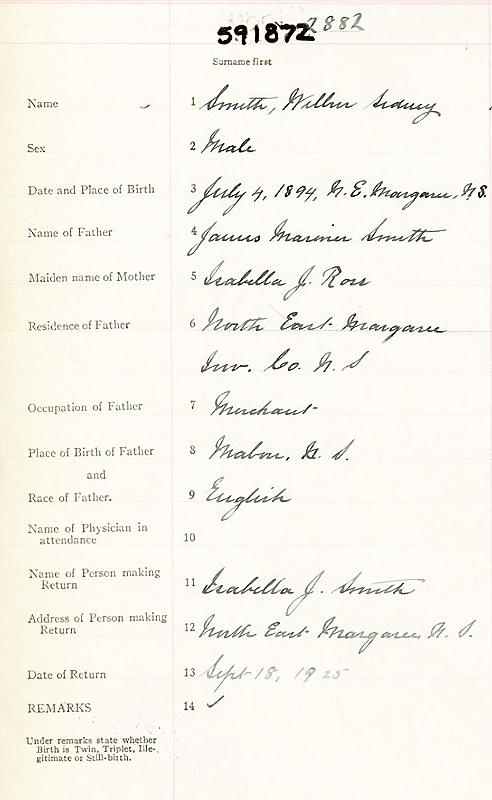 2882
591872
Surname first
Name 1 Smith, Wilbur Sidney
Sex 2 Male
Date and Place of Birth 3 July 4, 1894, N.E. Margaree, N.S.
Name of Father 4 James Mariner Smith
Maiden name of Mother 5 Isabella J. Ross
Residence of Father 6 North East Margaree
Inv. Co. N. S
Occupation of Father 7 Merchant
Place of Birth of Father 8 Mabou, N. S.
and
Race of Father. 9 English
Name of Physician in
attendance 10
Name of Person making
Return 11 Isabella J. Smith
Address of Person making
Return 12 North East Margaree, N. S.
Date of Return 13 Sept 18, 1925
REMARKS 14 ✓
Under remarks state whether
Birth is Twin, Triplet, Ille-
gitimate or Still-birth.